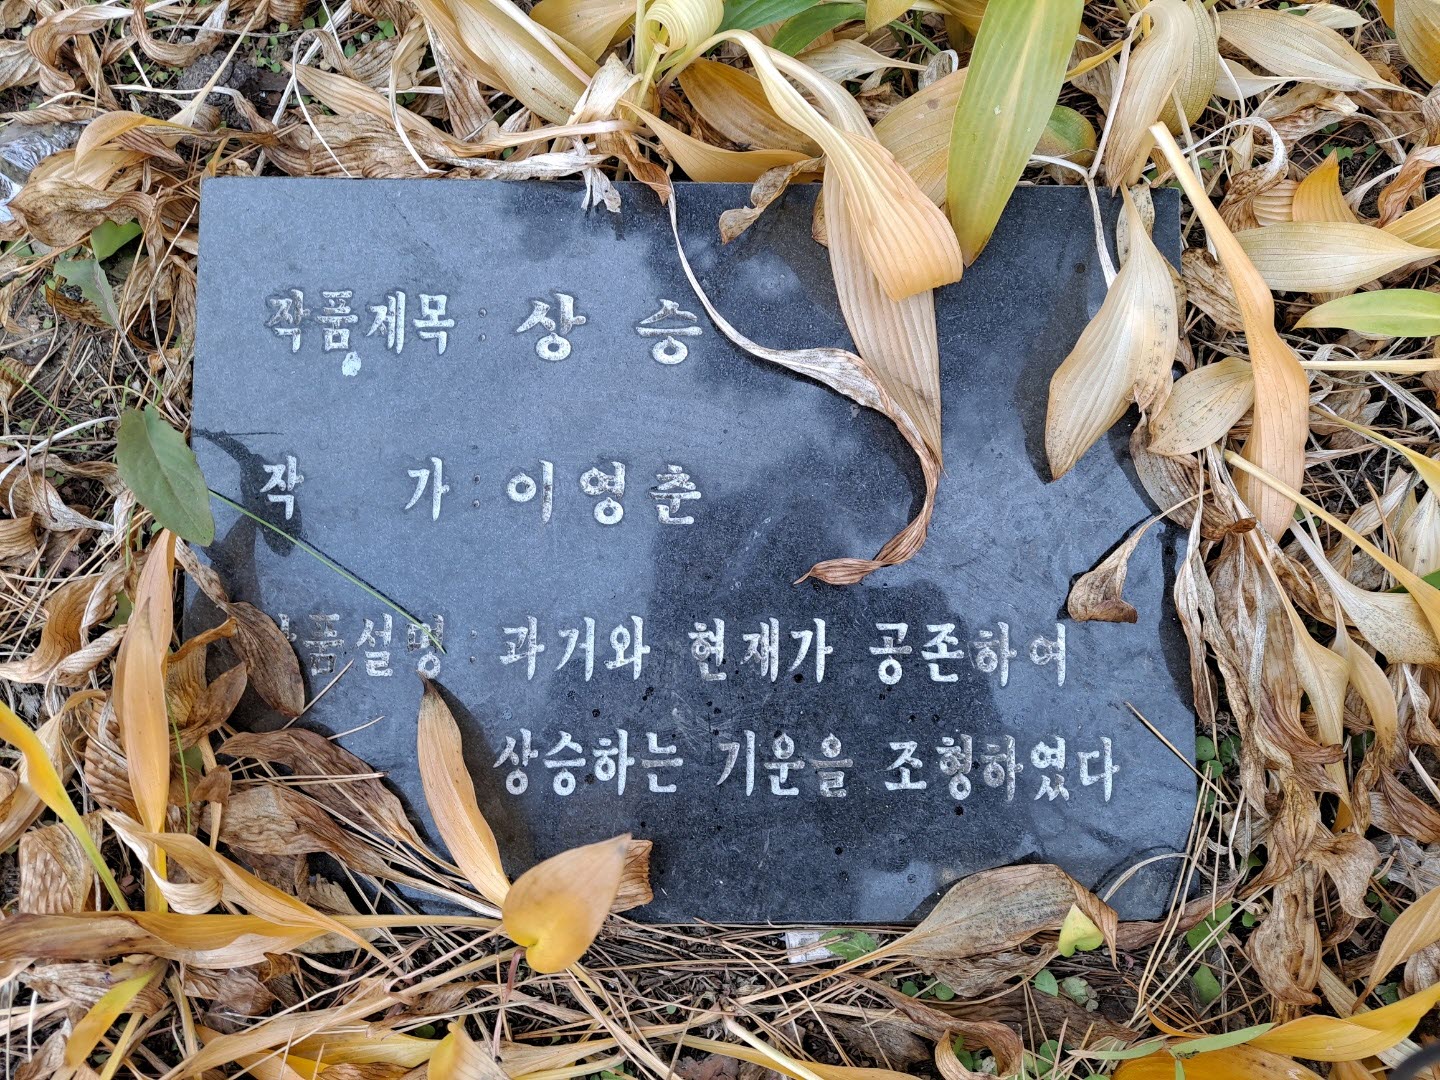 작품제목 : 상 승
작 가 : 이영춘
작품설명 : 과거와 현재가 공존하여
상승하는 기운을 조형하였다